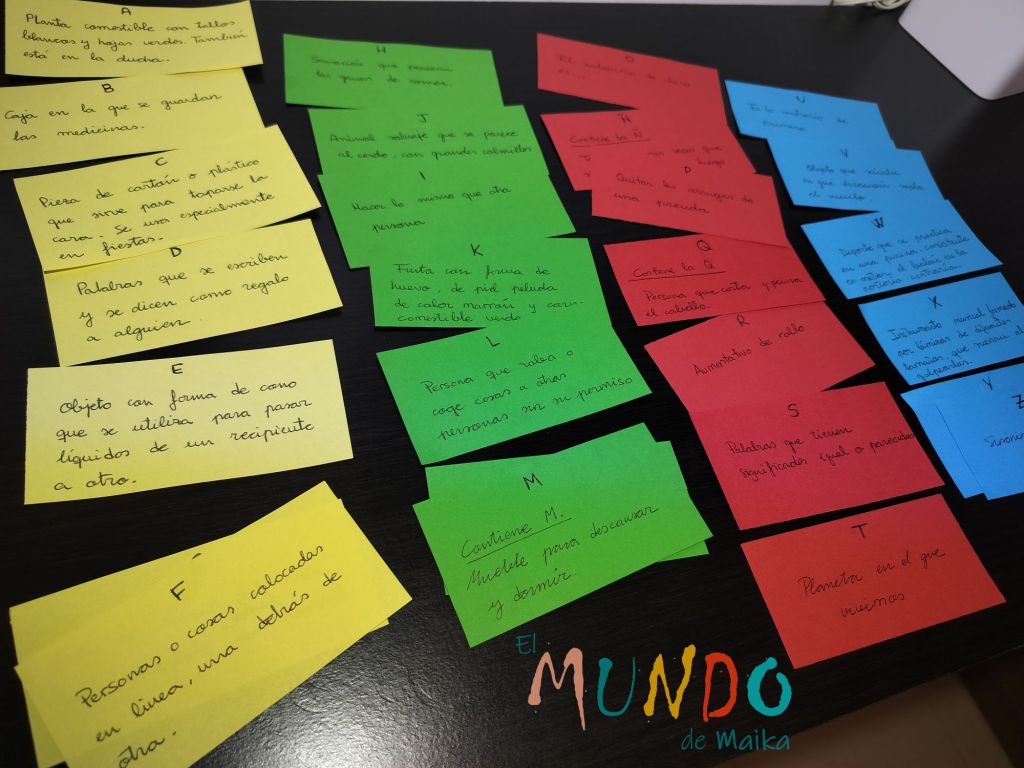 A
Planta comestible con tallos
blancos y hojas verdes. También
está en la ducha.
B
Caja en la que se guardan
las medicinas.
C
Pieza de cartón o plástico
que sirve para taparse la
cara. Se usa especialmente
en fiestas.
D
Palabras que se escriben
y se dicen como regalo
a alguien.
E
Objeto con forma de cono
que se utiliza para pasar
líquidos de un recipiente
a otro.
F
Personas o cosas colocadas
en línea, una detrás de
otra.
H
Sensación que
las ganas de comer.
J
Animal salvaje que se parece
al cerdo, con grandes colmillos
I
Hacer lo mismo que otra
persona
K
Fruta con forma de
huevo, de piel peluda
de color marrón y carne
comestible verde
L
Persona que roba o
coge cosas a otras
personas sin su permiso
M
Contiene M.
Mueble para descansar
y dormir
O
El antónimo de claro
es...
Ñ
Contiene la Ñ
que
fuego
P
Quitar las arrugas de
una prenda
Q
Contiene la Q
Persona que corta y peina
el cabello.
R
Aumentativo de
S
Palabras que tienen
significados igual o parecidos
T
Planeta en el que
vivimos
U
Es lo contrario de
primero
V
Objeto que
en que dirección sopla
el viento
W
Deporte que se practica
en una piscina, consistente
en meter el balón en la
portería contraria.
X
Instrumento musical formado
por láminas de diferentes
tamaños, que suenan al
golpearlas.
Y
Z
El
MUNDO
de Maika